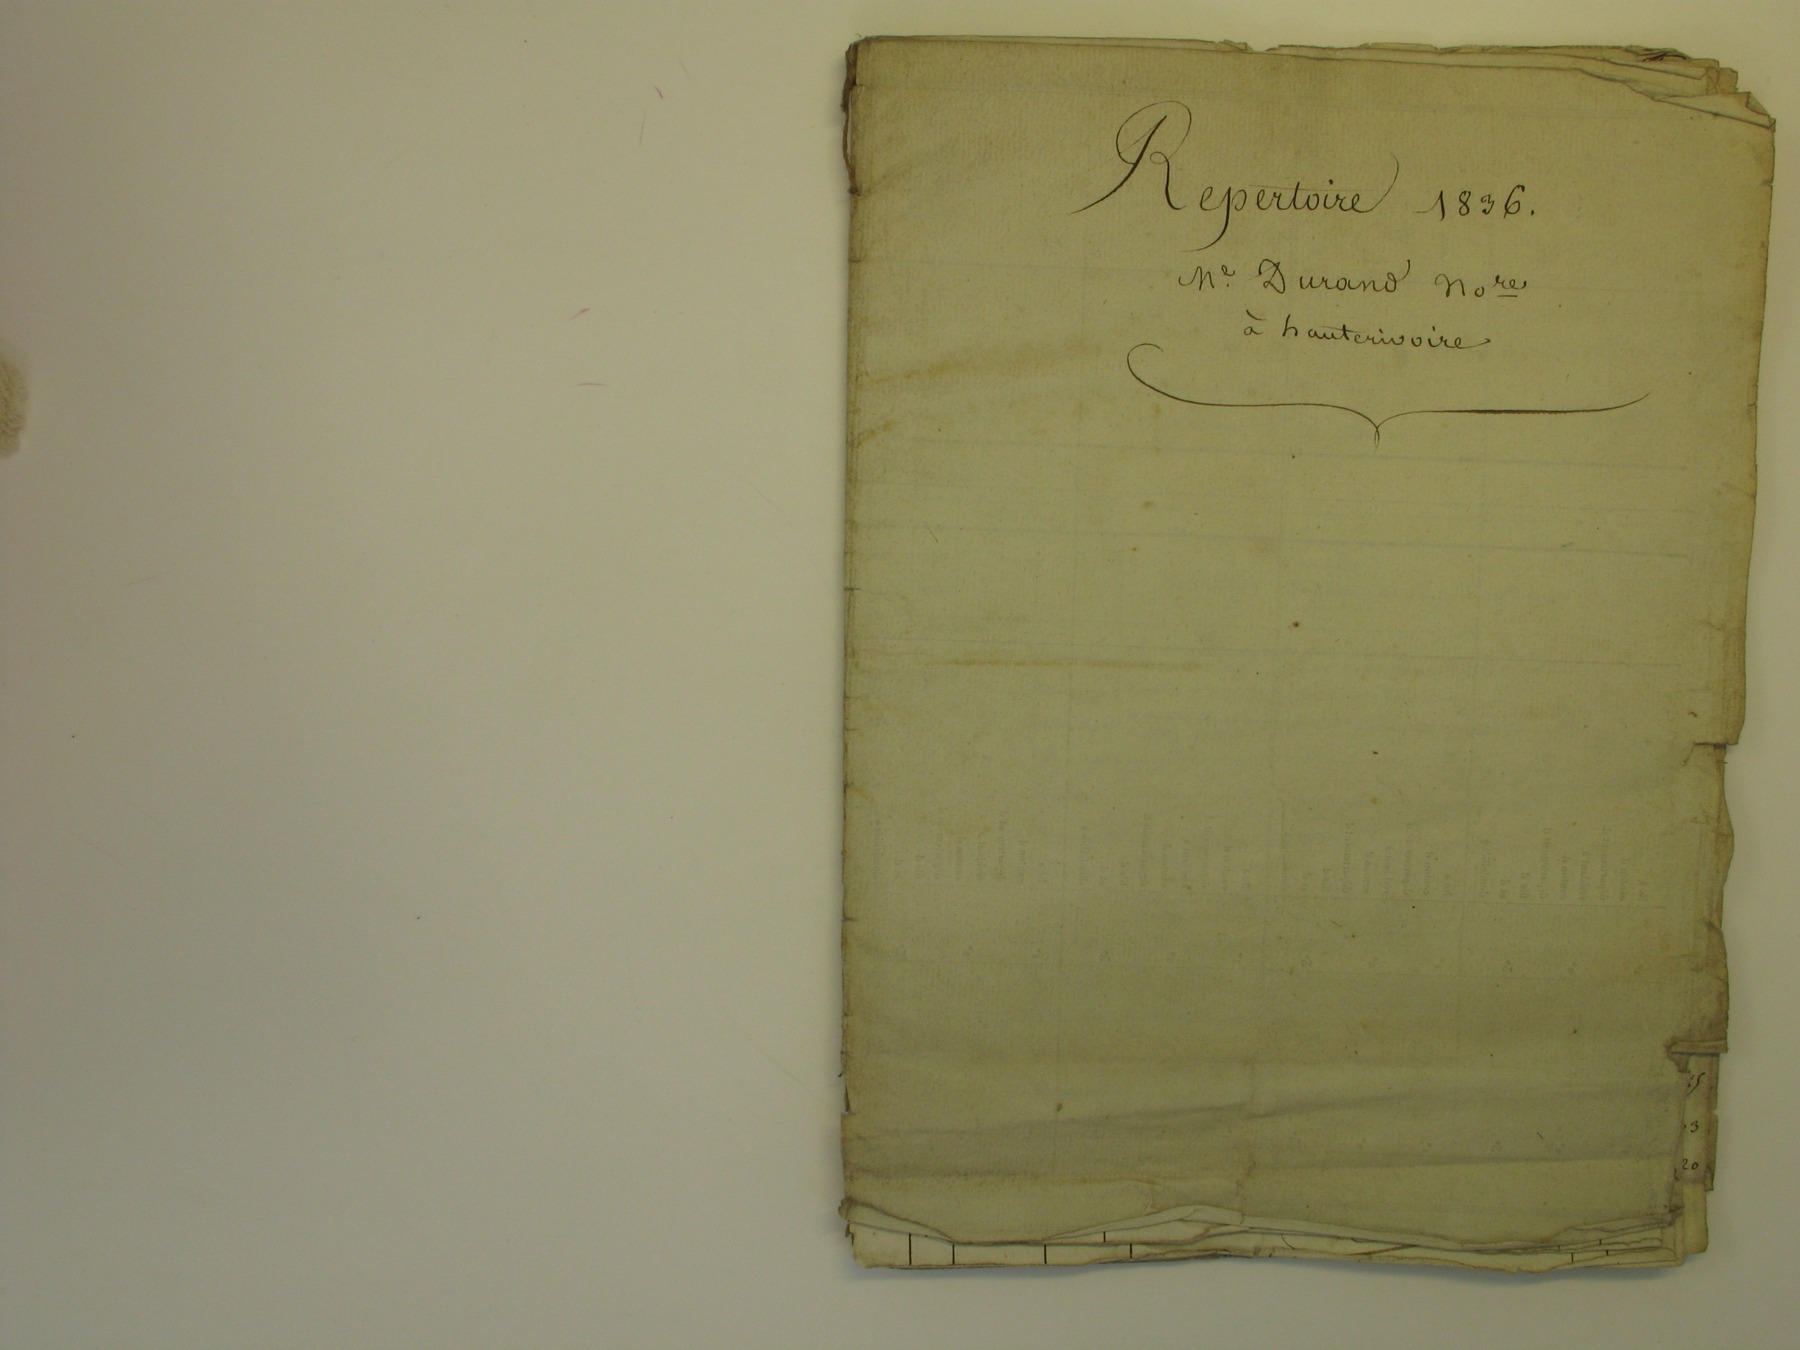 Repertoire 1836.
Me. Durand Nore
à hauterivoire
25
03
20